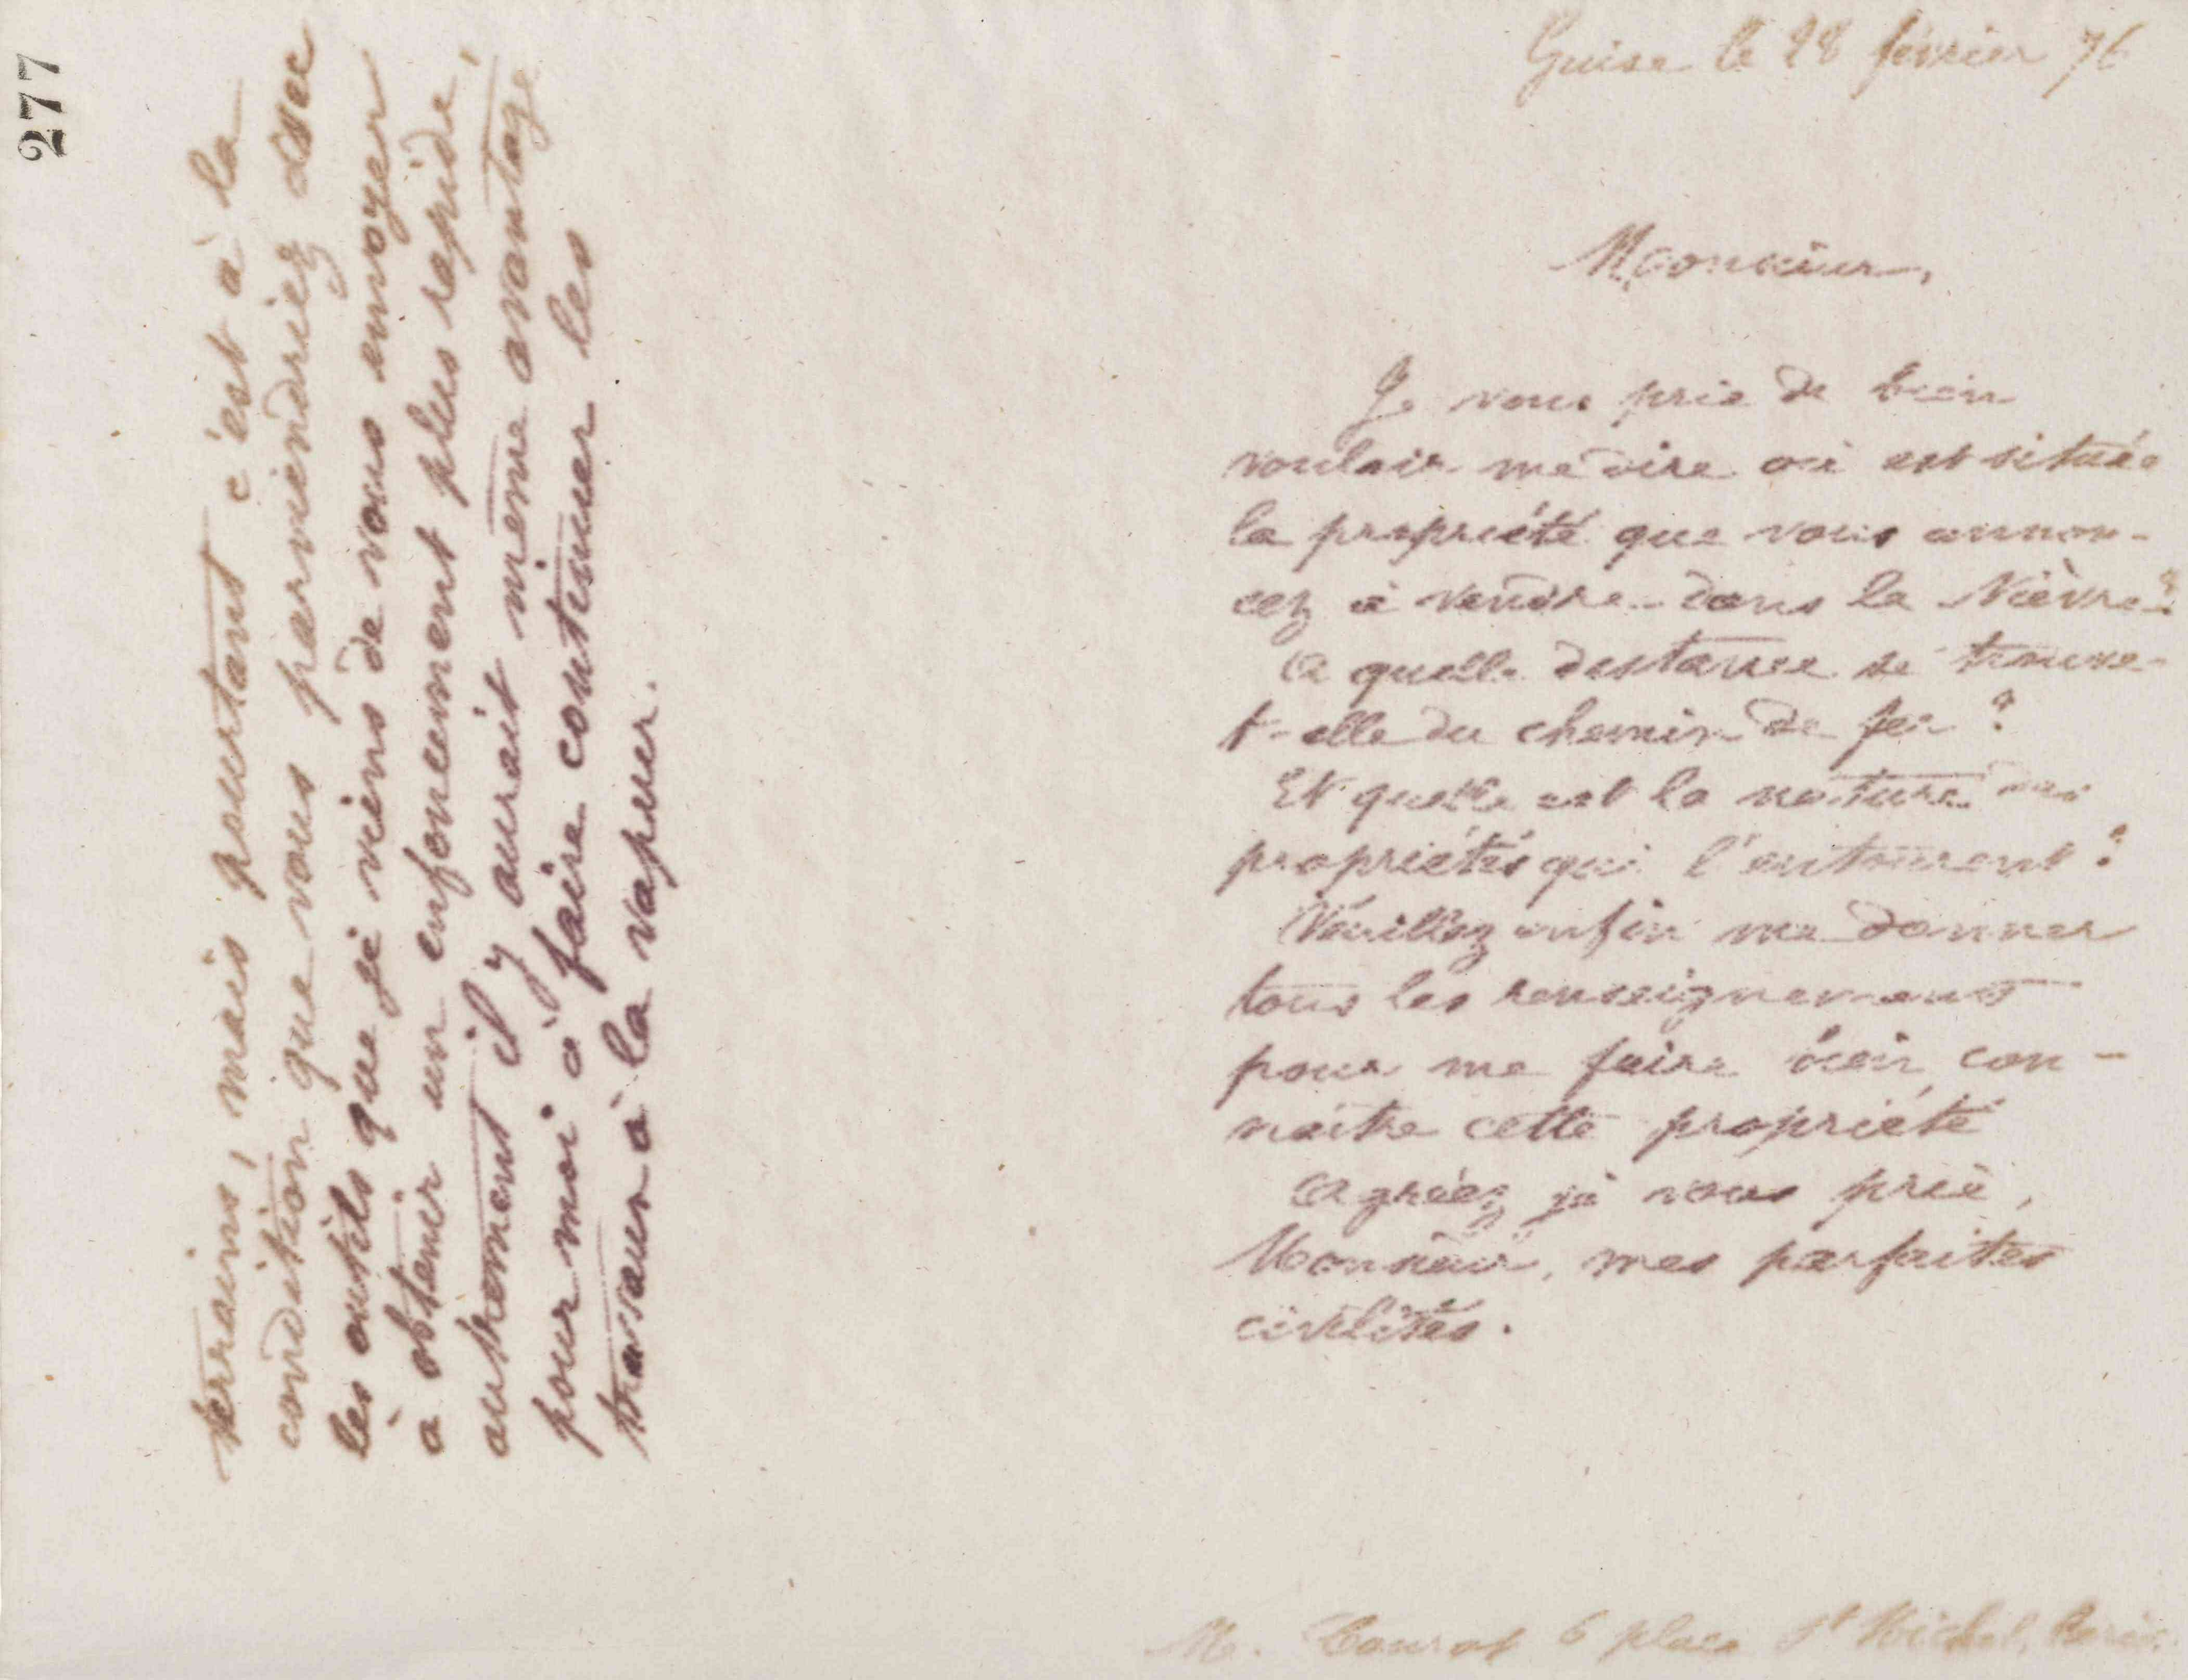 277
terrains, mais pourtant c'est à la
condition que vous parviendriez avec
les outils que je viens de vous envoyer
à obtenir un enfoncement plus rapide,
autrement il y aurait même avantage
pour moi à faire continuer les
travaux à la vapeur.
Guise le 28 février 76
Monsieur,
Je vous prie de bien
vouloir me dire où est située
la propriété que vous annon-
cez à vendre dans la Nièvre?
A quelle distance se trouve-
t-elle du chemin de fer ?
Et quelle est la nature des
propriétés qui l'entourent ?
Veuillez enfin me donner
tous les renseignements
pour me faire bien con-
naître cette propriété
Agréez je vous prie,
Monsieur, mes parfaites
civilités.
M. 6 place St Michel, Paris.